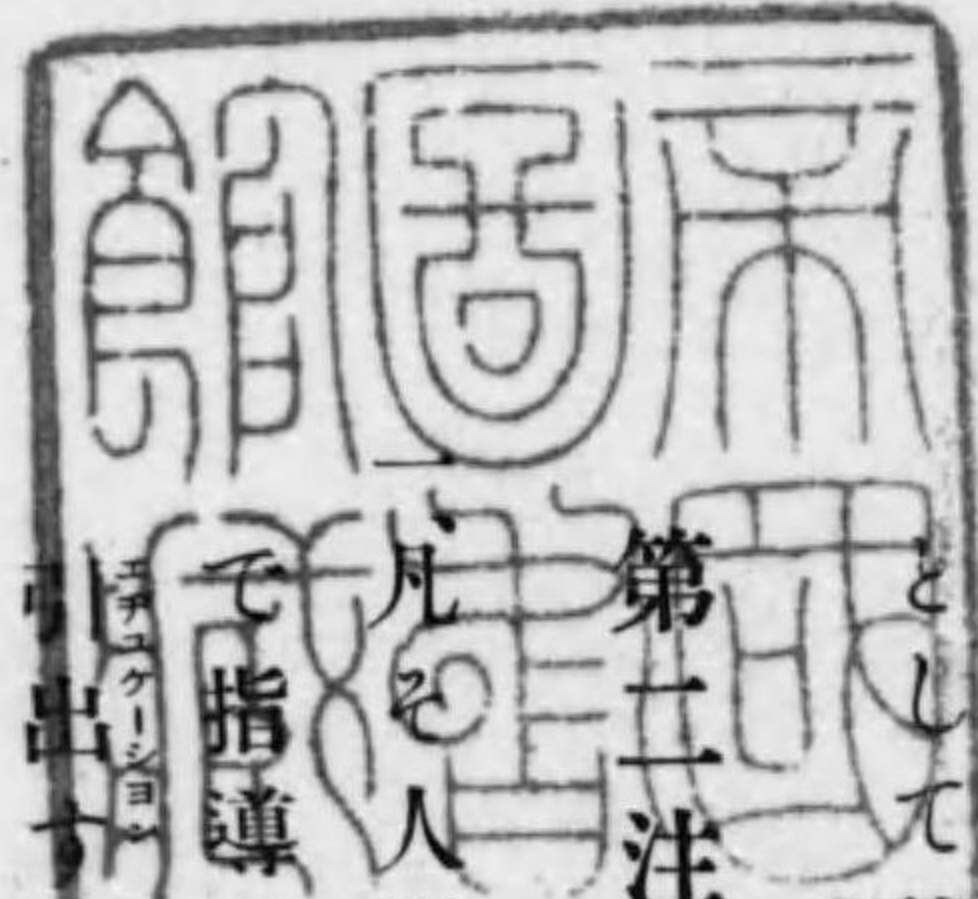 帝國
圖書
館藏
として
第二注
一、凡そ人
で指導
エヂユケーシヨン
引出す